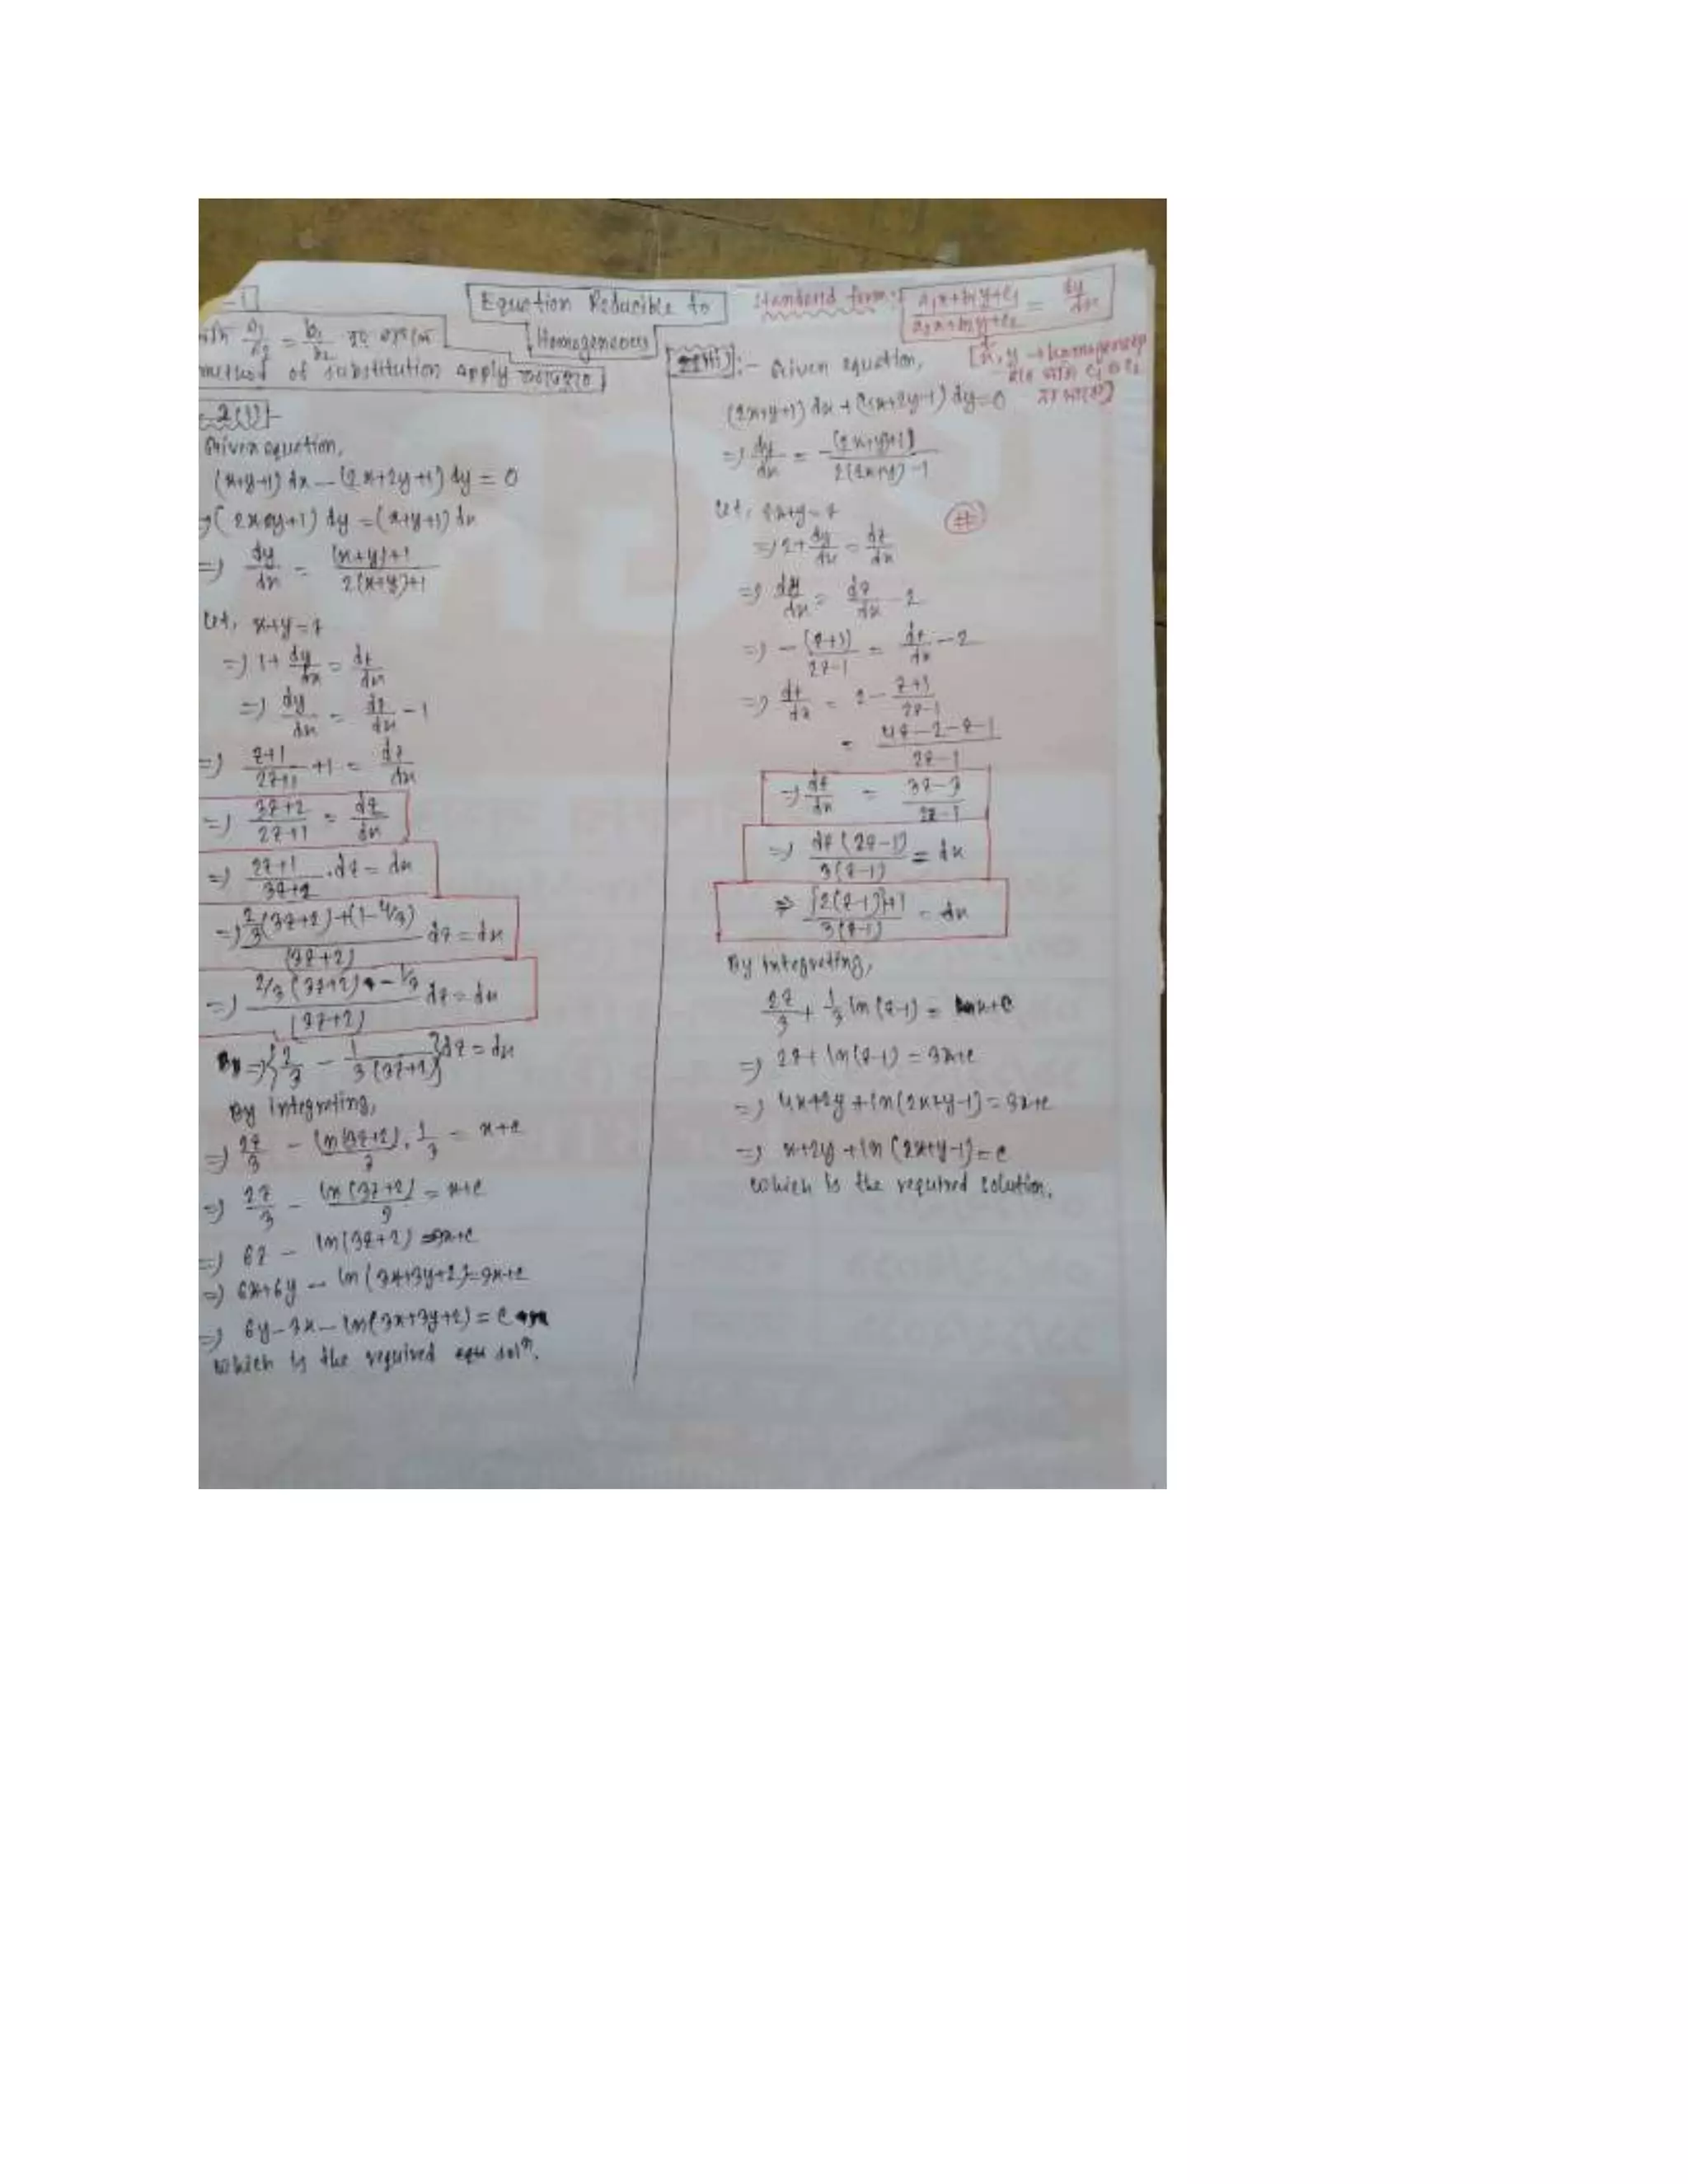 Equation Reducible to
Homogeneous
Standerd form:
(a₁x+b₁y+c₁)/(a₂x+b₂y+c₂) = dy/dx
a₁/a₂ = b₁/b₂
method of substitution apply
2(i)
Given equation,
(x+y+1) dx - (2x+2y+1) dy = 0
⇒ (2x+2y+1) dy = (x+y+1) dx
⇒ dy/dx = ((x+y)+1)/(2(x+y)+1)
Let, x+y=z
⇒ 1+ dy/dx = dz/dx
⇒ dy/dx = dz/dx - 1
⇒ (z+1)/(2z+1) + 1 = dz/dx
⇒ (3z+2)/(2z+1) = dz/dx
⇒ (2z+1)/(3z+2) . dz = dx
⇒ (2/3(3z+2)+(1-4/3))/(3z+2) dz = dx
⇒ (2/3(3z+2) - 1/3)/(3z+2) dz = dx
⇒ {2/3 - 1/(3(3z+2))} dz = dx
By integreting,
⇒ 2z/3 - ln(3z+2)/3 . 1/3 = x+c
⇒ 2z/3 - ln(3z+2)/9 = x+c
⇒ 6z - ln(3z+2) = 9x+c
⇒ 6x+6y - ln(3x+3y+2) = 9x+c
⇒ 6y-3x - ln(3x+3y+2) = c
which is the required solⁿ.
:- Given equation,
(2x+y+1) dx + (4x+2y-1) dy = 0
⇒ dy/dx = -((2x+y)+1)/(2(2x+y)-1)
Let, 2x+y=z
⇒ 2+ dy/dx = dz/dx
⇒ dy/dx = dz/dx - 2
⇒ -(z+1)/(2z-1) = dz/dx - 2
⇒ dz/dx = 2 - (z+1)/(2z-1)
= (4z-2-z-1)/(2z-1)
⇒ dz/dx = (3z-3)/(2z-1)
⇒ dz(2z-1)/(3(z-1)) = dx
⇒ ({2(z-1)}+1)/(3(z-1)) = dx
By integreting,
2z/3 + 1/3 ln(z-1) = x+c
⇒ 2z+ ln(z-1) = 3x+c
⇒ 4x+2y + ln(2x+y-1) = 3x+c
⇒ x+2y + ln(2x+y-1) = c
which is the required solution.